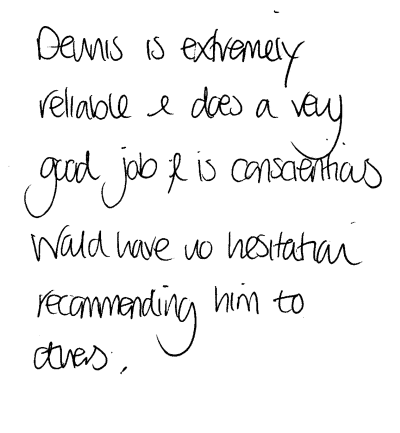 Dennis is extremely
reliable & does a very
good job & is conscientious
Would have no hesitation
recommending him to
others.